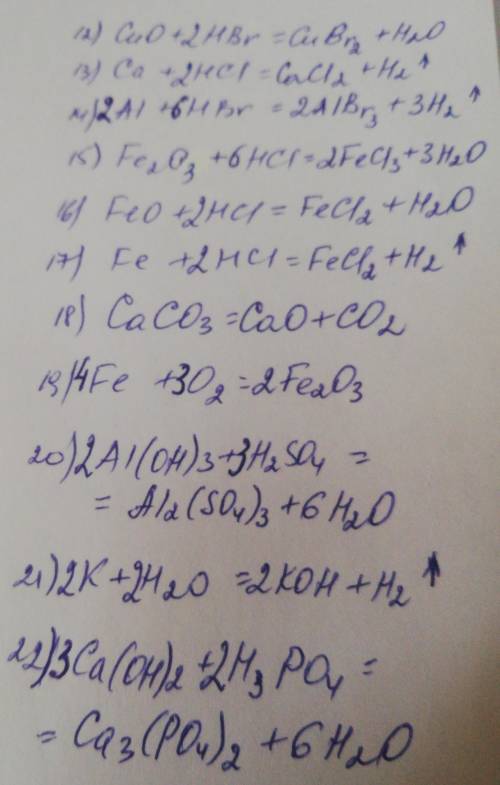 12) CuO + 2HBr = CuBr₂ + H₂O
13) Ca + 2HCl = CaCl₂ + H₂↑
14) 2Al + 6HBr = 2AlBr₃ + 3H₂↑
15) Fe₂O₃ + 6HCl = 2FeCl₃ + 3H₂O
16) FeO + 2HCl = FeCl₂ + H₂O
17) Fe + 2HCl = FeCl₂ + H₂↑
18) CaCO₃ = CaO + CO₂
19) 4Fe + 3O₂ = 2Fe₂O₃
20) 2Al(OH)₃ + 3H₂SO₄ =
= Al₂(SO₄)₃ + 6H₂O
21) 2K + 2H₂O = 2KOH + H₂↑
22) 3Ca(OH)₂ + 2H₃PO₄ =
= Ca₃(PO₄)₂ + 6H₂O